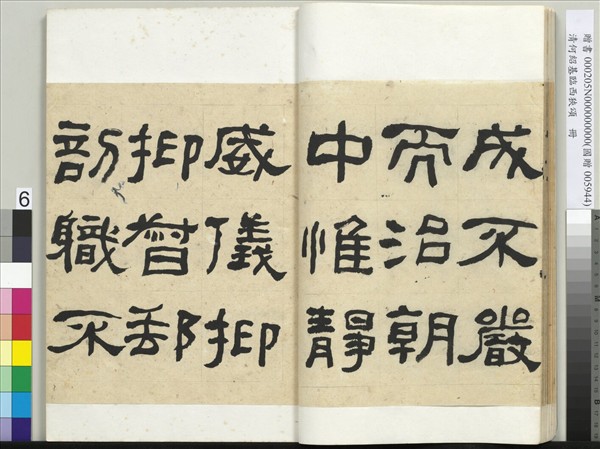 成不嚴
而治朝
中惟靜
威儀抑
抑督郵
部職不
贈書 000205N000000000(國贈 005944)
清何紹基臨西狹頌 冊
6